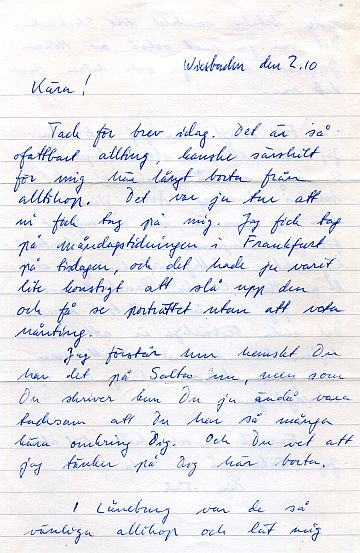 Wiesbaden den 2.10
Kära!
Tack för brev idag. Det är så
ofattbart allting, kanske särskilt
för mig här långt borta från
alltihop. Det var ju tur att
ni fick tag på mig. Jag fick tag
på måndagstidningen i Frankfurt
på tisdagen, och det hade ju varit
lite konstigt att slå upp den
och få se porträttet utan att veta
nånting.
Jag förstår hur hemskt Du
har det på Saltis nu, men som
Du skriver kan Du ju ändå vara
tacksam att Du har så många
kära omkring Dig. Och Du vet att
jag tänker på Dig här borta.
I Lüneburg var de så
vänliga allihop och lät mig